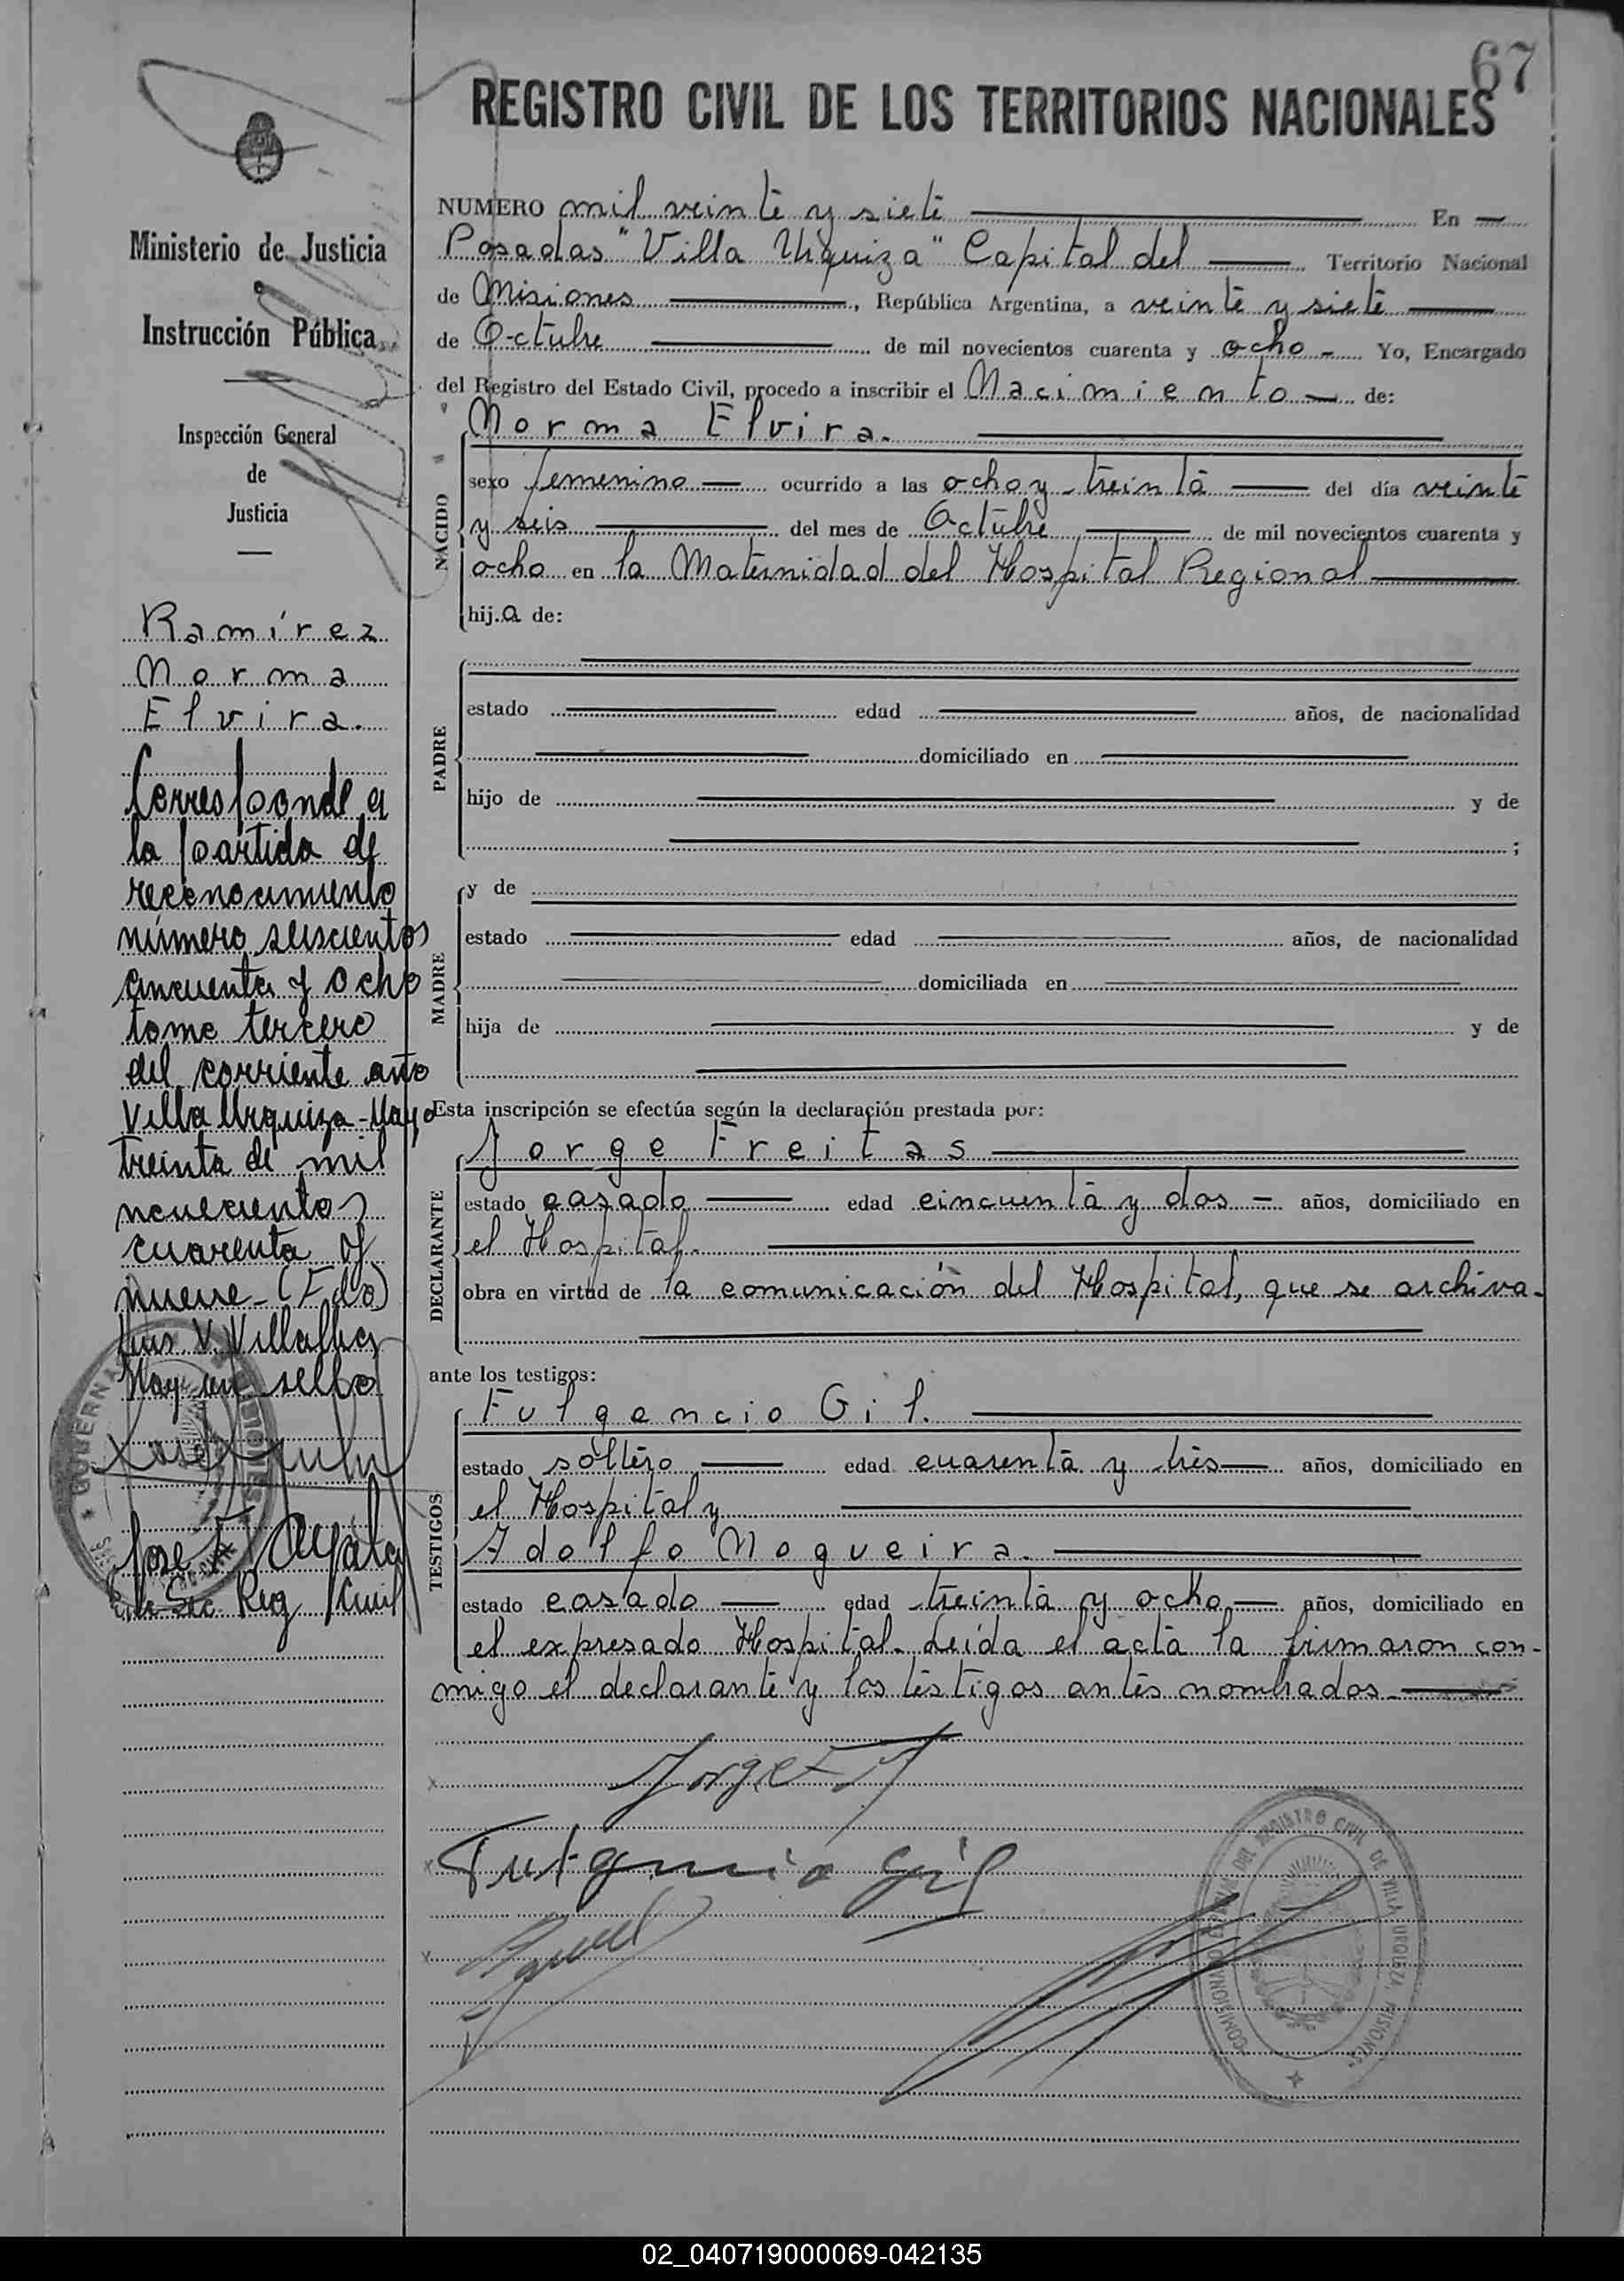 67
REGISTRO CIVIL DE LOS TERRITORIOS NACIONALES
Ministerio de Justicia
e
Instrucción Pública
Inspección General
de
Justicia
Ramírez
Norma
Elvira.
Corresponde a
la partida de
reconocimiento
número seiscientos
cincuenta y ocho
tomo tercero
del corriente año
Villa Urquiza - Mayo
treinta de mil
novecientos
cuarenta y
nueve - (Fdo)
Luis V. Villalba
Hay un sello
José F. Ayala
Sec. Reg. Civil
NUMERO mil veinte y siete En
Posadas "Villa Urquiza" Capital del Territorio Nacional
de Misiones, República Argentina, a veinte y siete
de Octubre de mil novecientos cuarenta y ocho - Yo, Encargado
del Registro del Estado Civil, procedo a inscribir el Nacimiento de:
Norma Elvira.
NACIDO
sexo femenino ocurrido a las ocho y treinta del día veinte
y seis del mes de Octubre de mil novecientos cuarenta y
ocho en la Maternidad del Hospital Regional
hij.a de:
PADRE
estado edad años, de nacionalidad
domiciliado en
hijo de y de
;
MADRE
y de
estado edad años, de nacionalidad
domiciliada en
hija de y de
Esta inscripción se efectúa según la declaración prestada por:
DECLARANTE
Jorge Freitas
estado casado edad cincuenta y dos - años, domiciliado en
el Hospital.
obra en virtud de la comunicación del Hospital, que se archiva.
ante los testigos:
TESTIGOS
Fulgencio Gil.
estado soltero edad cuarenta y tres años, domiciliado en
el Hospital y
Adolfo Nogueira.
estado casado edad treinta y ocho años, domiciliado en
el expresado Hospital. Leída el acta la firmaron con-
migo el declarante y los testigos antes nombrados.
Jorge F
Fulgencio Gil
REGISTRO CIVIL DE VILLA URQUIZA MISIONES
02_040719000069-042135